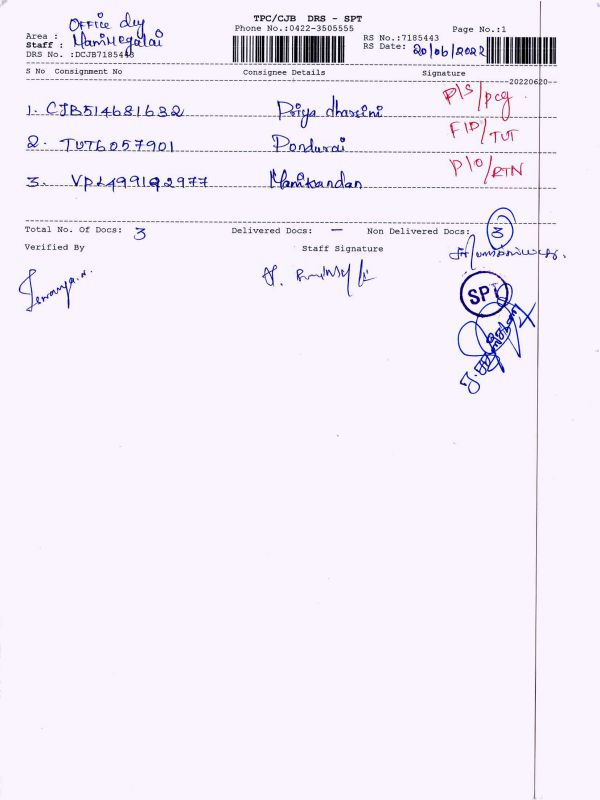 TPC/CJB DRS - SPT
Phone No.:0422-3505555
Page No.:1
Area : Office dly
Staff : Manimegalai
DRS No. :DCJB7185443
RS No.:7185443
RS Date: 20/06/2022
S No Consignment No Consignee Details Signature
20220620
1. CJB514681632 Priya dharsini P/S/pcg
2. TUT6057901 Pondurai F/D/TUT
3. Manikandan P/O/RTN
Total No. Of Docs: 3 Delivered Docs: — Non Delivered Docs: 3
Verified By Staff Signature
SPT